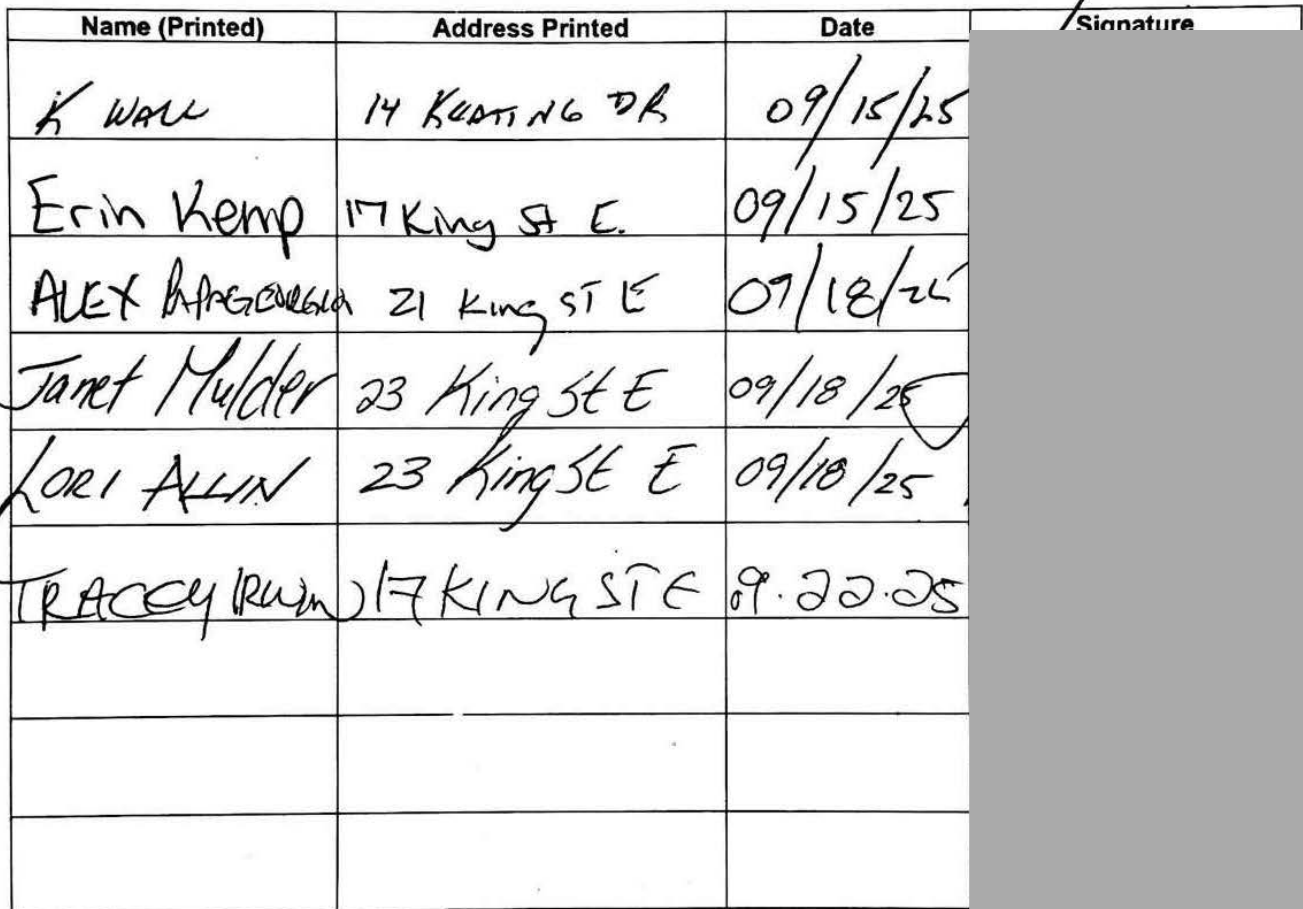 Name (Printed) Address Printed Date Signature
K WALL 14 KEATING DR 09/15/25
Erin Kemp 17 King St E. 09/15/25
ALEX 21 King ST E 09/18/25
Janet Mulder 23 King St E 09/18/25
LORI ALLIN 23 King St E 09/18/25
TRACEY IRWIN 17 KING ST E 9.22.25